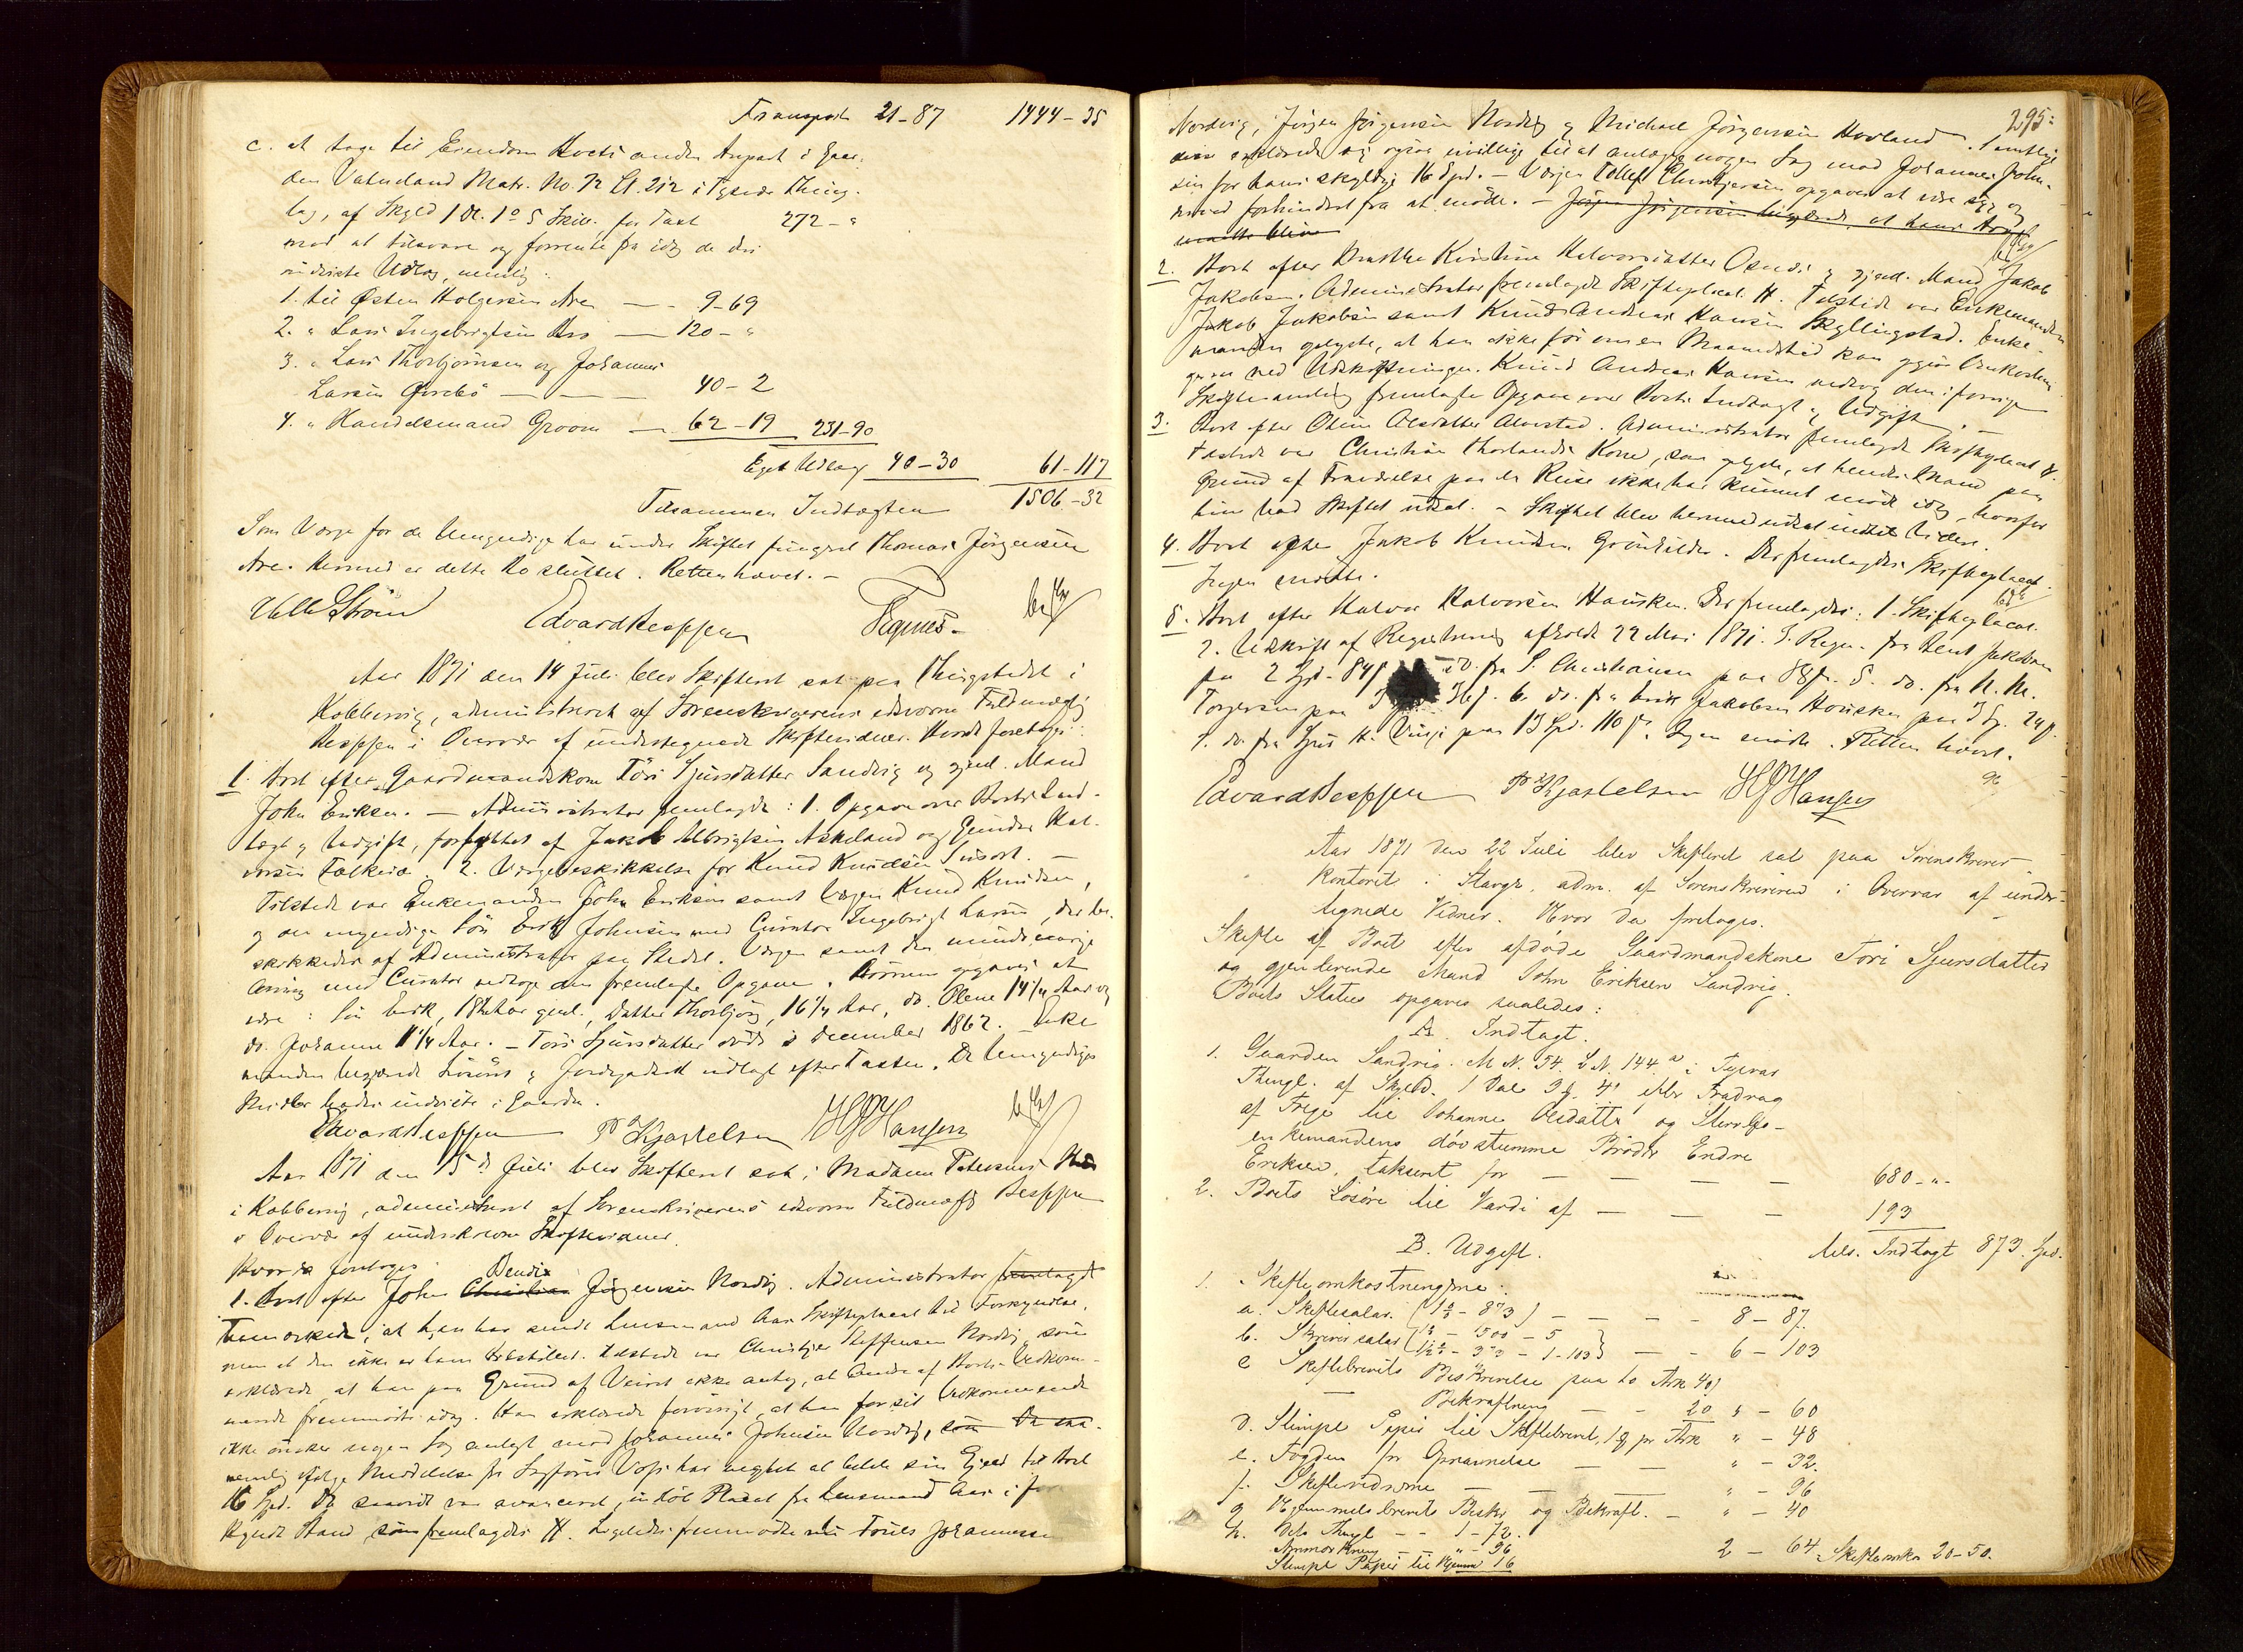 Transport 21-87 1444-35
c. at tage til Eiendom Boets anden Anpart i Gaar-
den Vatneland Matr. No. 72 Lt. 212 i Tysvær Thing-
lag, af Skyld 1 Dl. 1 O 5 Skill. for Taxt 272 - "
mod at tilsvare og forrente fra idag de deri
indviste Udlæg, nemlig:
1. til Østen Holgersen Are — - 9-69
2. " Lars Ingebrigtsen Aro — 120 - "
3. " Lars Thorbjørnsen og Johannes
Larsen Grebø — — — 40-2
4. " Handelsmand Groom — 62-19 231-90
Eget Udlæg 40-30 61-117
Tilsammen Indtægten 1506-32
Som Værge for de Umyndige har under Skiftet fungeret Thomas Jørgensen
Are. Hermed er dette Bo sluttet. Retten hævet. -
Ulle Strøm Edvard Jespersen
Aar 1871 den 14 Juli blev Skifteret sat paa Thingstedet i
Kobbervig, administreret af Sorenskriverens edsvorne Fuldmægtig
Jespersen i Overvær af undertegnede Skiftevidner. Hvorda foretoges:
1. Boet efter Gaardmandskone Tøri Sjursdatter Sandvig og gjenl. Mand
John Eriksen. — Administrator fremlagde: 1. Opgave over Boets Ind-
tægt og Udgift, forfattet af Jakob Albrigtsen Askeland og Gunder Hal-
vorsen Falkeid. 2. Værgebeskikkelse for Knud Knudsen Susort. —
Tilstede var Enkemanden John Eriksen samt Værgen Knud Knudsen,
og den umyndige Søn Erik Johnsen med Curator Ingebrigt Larsen, der be-
skikkedes af Administrator paa Stedet. Værgen samt den mindreaarige
Arving med Curator vedtoge den fremlagte Opgave. Børnene opgaves at
være: Søn Erik, 18 Aar gml., Datter Thorbjørg, 16 1/4 Aar, do. Olene 14 1/4 Aar og
do. Johanne 11 1/4 Aar. - Tøri Sjursdatter døde i December 1862. - Enke
manden begjærede Løsøre og Jordegodset udlagt efter Taxten. De Umyndiges
Midler bades indviste i Gaarden.
Edvard Jespersen P Kjastelsen HJ Hansen
Aar 1871 den 15de Juli blev Skifteret sat i Madame Petersens Hus
i Kobbervig, administreret af Sorenskriverens edsvorne Fuldmægtig Jespersen
i Overvær af underskrevne Skiftevidner.
Hvorda foretoges:
Bendix
1. Boet efter John Christian Jørgensen Nordvig. Administrator fremlagde
bemærkede, at han har sendt Lensmand Aas Skifteplacat til Forkyndelse,
men at den ikke er ham tilstillet. Tilstede var Christjer Steffensen Nordvig, som
erklærede, at han paa Grund af Veiret ikke antog, at Andre af Boets Vedkom-
mende fremmødte idag. Han erklærede forøvrigt, at han for sit Vedkommende
ikke ønsker nogen Sag anlagt mod Johannes Johnsen Nordvig, som
nemlig ifølge Meddelelse fra Sagfører Voss har negtet at betale sin Gjæld til Boet
16 Spd. Da saavidt var avanceret, indløb Placat fra Lensmand Aas i for
kyndt Stand, som fremlagdes H. Ligeledes fremmødte nu Tønes Johannessen
295.
Nordvig, Jørgen Jørgensen Nordvig og Michael Jørgensen Hovland. Samtlige
disse erklærede sig ogsaa uvillige til at anlægge nogen Sag mod Johannes John-
sen for hans skyldige 16 Spd. - Værgen Tollef Christjersen opgaves at være syg og
herved forhindret fra at møde. - Jørgen Jørgensen begjærede, at hans Arv
maatte blive
2. Boet efter Marthe Kirstine Halvorsdatter Osnes og gjenl. Mand Jakob
Jakobsen. Administrator fremlagde Skifteplacat H. Tilstede var Enkemanden
Jakob Jakobsen samt Knud Andreas Hansen Skyllingstad. Enke-
manden oplyste, at han ikke før om en Maanedstid kan opgjøre Omkostnin-
gerne ved Udskiftningen. Knud Andreas Hansen vedtog den i forrige
Skiftesamling fremlagte Opgave over Boets Indtægt og Udgift. —
3. Boet efter Oline Olsdatter Alvestad. Administrator fremlagde Skifteplacat H.
Tilstede var Christian Thorlands Kone, som oplyste, at hendes Mand paa
Grund af Fraværelse paa en Reise ikke har kunnet møde idag, hvorfor
hun bad Skiftet udsat. - Skiftet blev hermed udsat indtil Videre.
4. Boet efter Jakob Knudsen Grønhilder. Der fremlagdes Skifteplacat.
Ingen mødte.
5. Boet efter Halvor Halvorsen Hausken. Der fremlagdes: 1. Skifteplacat.
2. Udskrift af Registrering afholdt 22 Mai 1871. 3. Regn. fra Bent Jakobsen
paa 2 Spd. 84 do. fra S. Christiansen paa 88 s. 5. do. fra N. N.
Torgersen paa 36 s. 6. do. fra Erik Jakobsen Hausken paa 3 Sp. 24 s.
7. do. fra Sjur H. Vinje paa 13 Spd. 110 s. Ingen mødte. Retten hævet.
Edvard Jespersen P Kjastelsen HJ Hansen
Aar 1871 den 22 Juli blev Skifteret sat paa Sorenskriver-
kontoret i Stavgr. adm. af Sorenskriveren i Overvær af under-
tegnede Vidner. Hvor da foretoges.
Skifte af Boet efter afdøde Gaardmandskone Tøri Sjursdatter
og gjenlevende Mand John Eriksen Sandvig.
Boets Status opgaves saaledes:
A. Indtægt.
1. Gaarden Sandvig. M N. 54. L N. 144 a i Tysvær
Thingl. af Skyld. 1 Dal 3 O 4 s efter Fradrag
af Frige til Johanne Olsdatter og Stervbo-
enkemandens døvstumme Broder Endre
Eriksen, takseret for — — — — 680 - " -
2. Boets Løsøre til Værdi af — — — 193
tils. Indtægt 873. Spd.
B. Udgift.
1. Skifteomkostningerne:
a. Skiftesalær. (1% - 873) — — — 8 - 87.
b. Skriversalær (1% - 500 - 5
1/2% - 373 - 1-103) — - 6 - 103
c Skiftebrevets Beskrivelse paa to Ark 40
— Bekræftning — - 20 " - 60
d. Stemplt Papir til Skiftebrevet, 1 O pr Ark " - 48
e. Fogden for Opnævnelse — — " - 32.
f. Skiftevidnerne — — — " - 96
g Hjemmelsbrevets Beskr. og Bekræft. - " - 40
h. Dets Thingl. - - 1 - 72.
Anmærkning — - " - 96
Stemplt Papir til Hjemm 16 2 - 64. Skifteomk. 20-50.